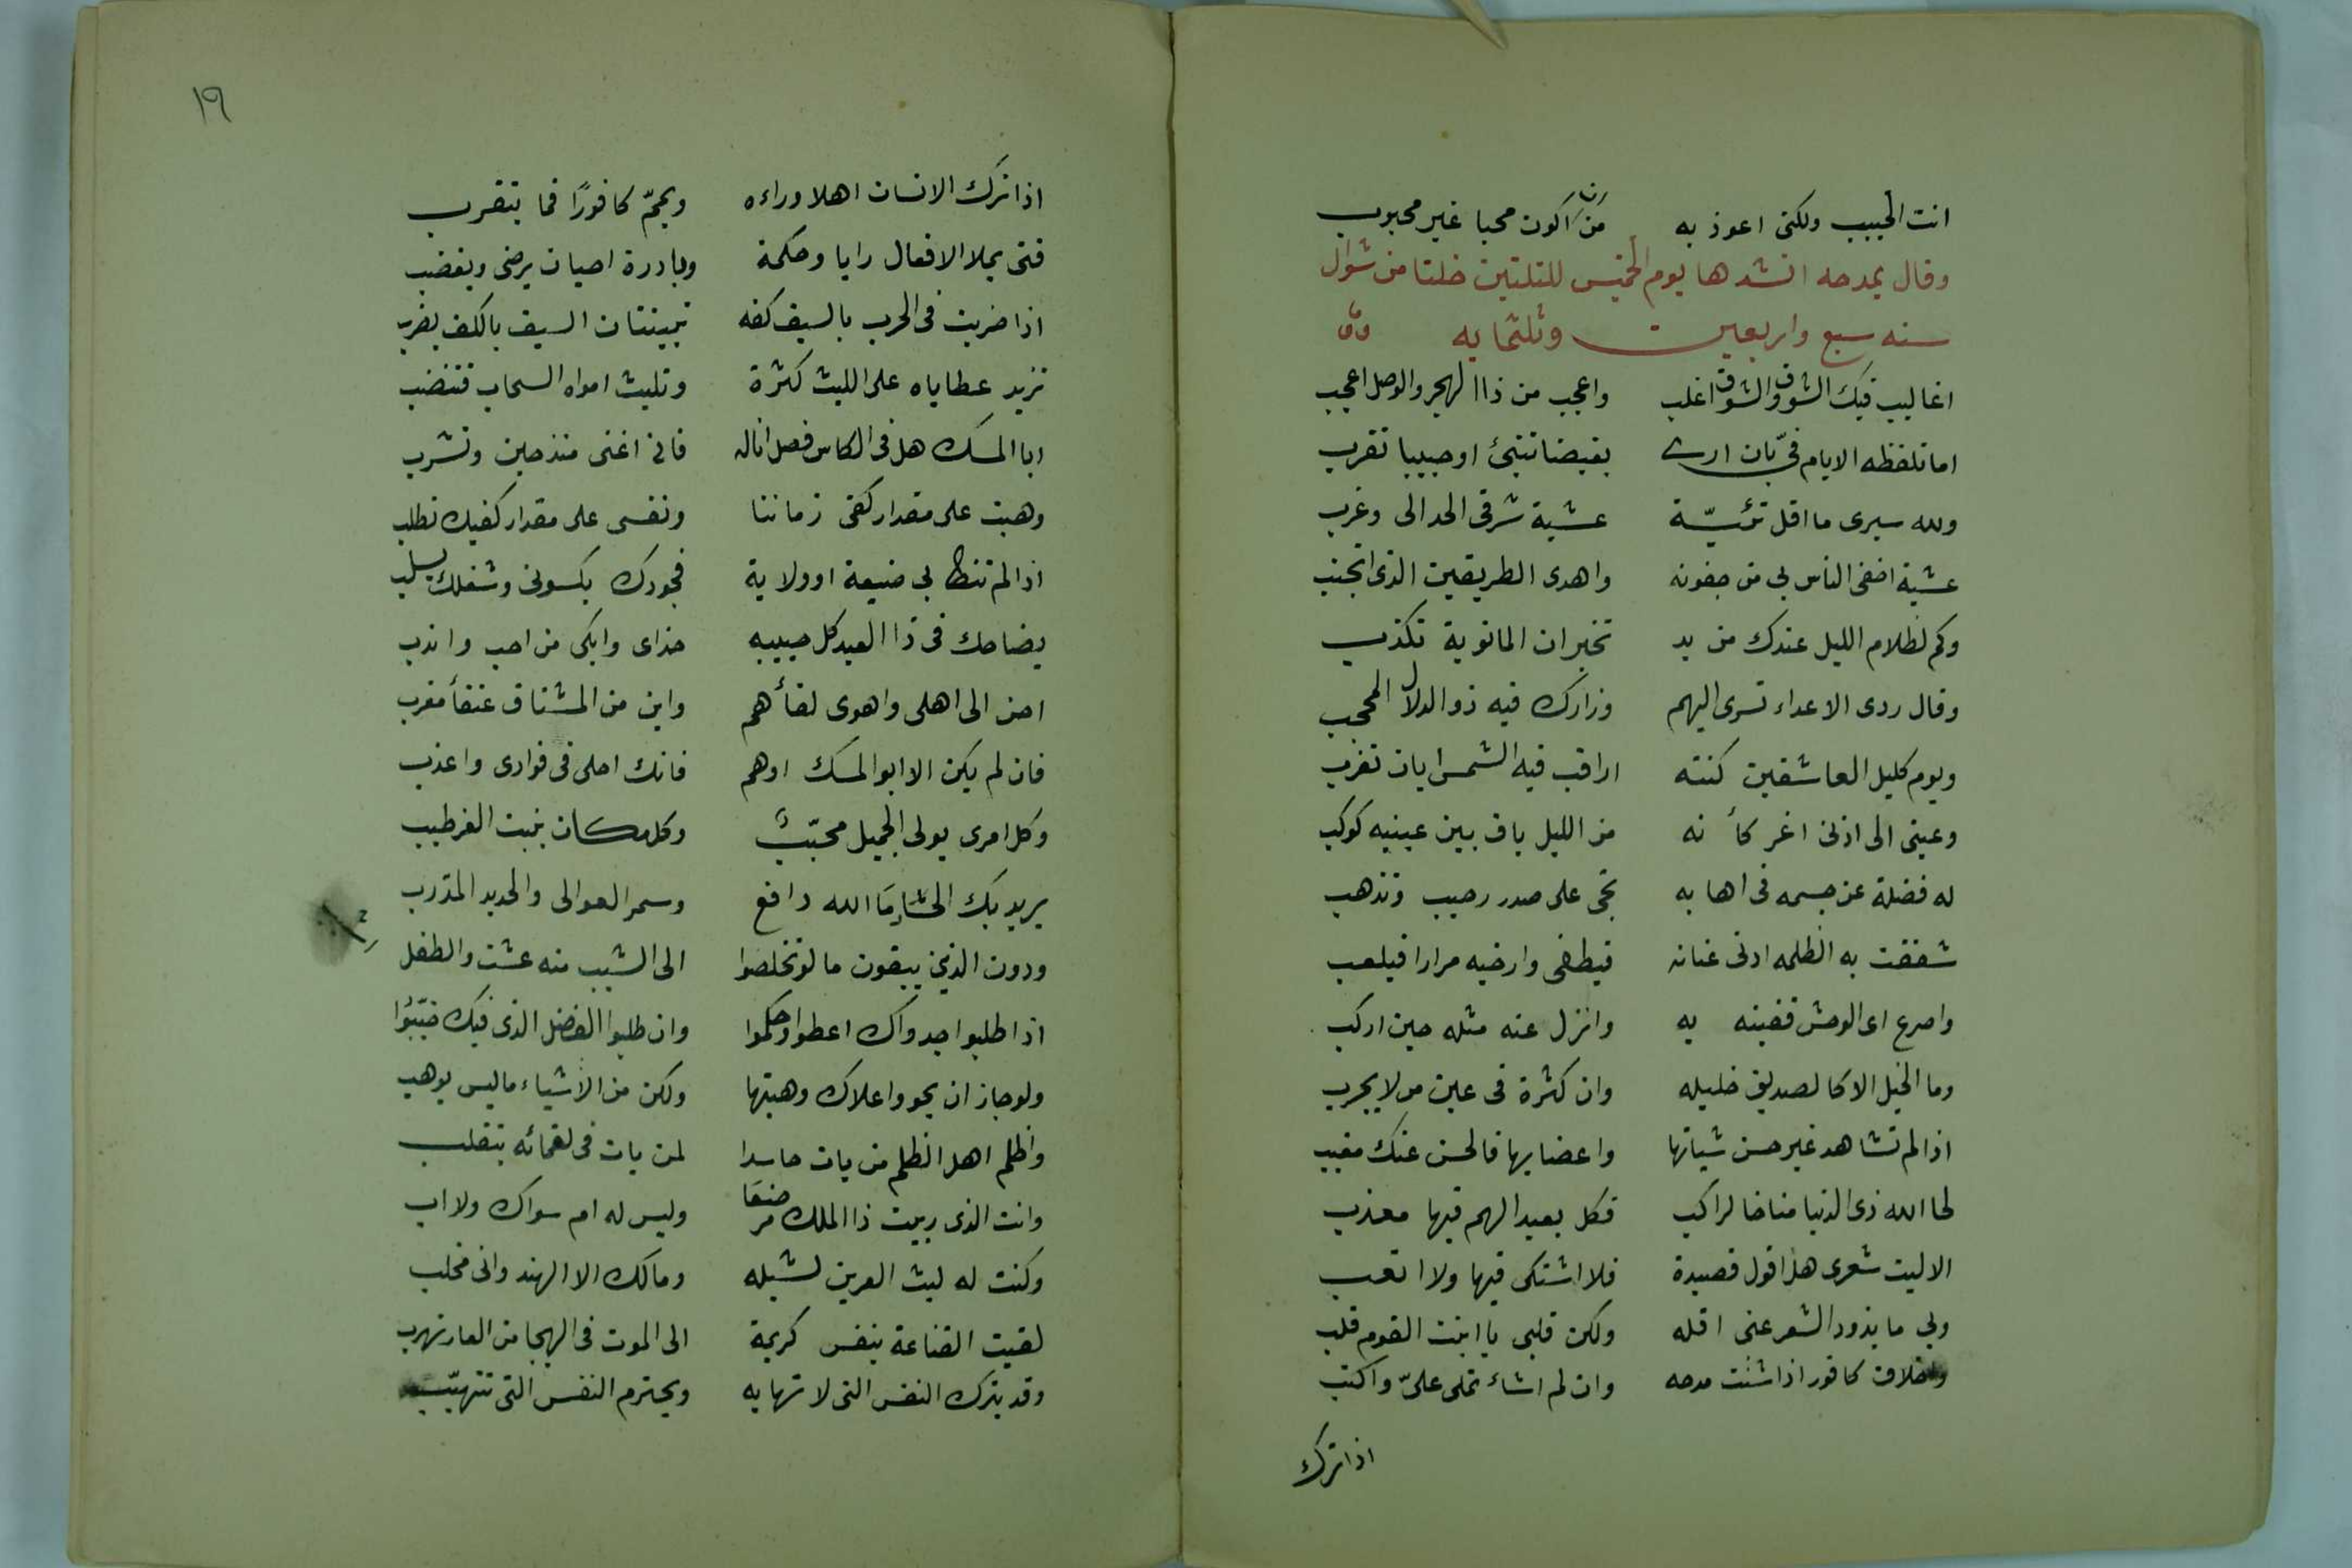 انت الحبيب ولكنى اعوذ به من ان اكون محبا غير محبوب
وقال يمدحه انشدها يوم الخميس لليلتين خلتا من شوال
سنه سبع واربعين وثلثمايه
اغاليب فيك الشوق والشوق اغلب واعجب من ذا الهجر والوصل اعجب
اما تلفظه الايام فىّ بان ارى بغيضا تنبئ او حبيبا تقرب
ولله سيرى ما اقل تئيّة عشية شرقى الحدالى وغرب
عشية اخفى الناس بى من جفونه واهدى الطريقين الذى اتجنب
وكم لظلام الليل عندك من يد تخبر ان المانوية تكذب
وقال ردى الاعداء تسرى اليهم وزارك فيه ذو الدلال المحجب
ويوم كليل العاشقين كنته اراقب فيه الشمس ايان تغرب
وعينى الى اذنى اغر كأنه من الليل باق بين عينيه كوكب
له فضلة عن جسمه فى اهابه تجى على صدر رحيب وتذهب
شققت به الظلمه ادنى عنانه فيطغى وارخيه مرارا فيلعب
واصرع اى الوحش قفيته به وانزل عنه مثله حين اركب
وما الخيل الا كالصديق خليله وان كثرة فى عين من لا يجرب
اذا لم تشاهد غير حسن شياتها واعضايها فالحسن عنك مغيب
لحا الله ذى الدنيا مناخا لراكب فكل بعيد الهم فيها معذب
الا ليت شعرى هل اقول قصيدة فلا اشتكى فيها ولا اتعب
وبى ما يذود الشعر عنى اقله ولكن قلبى يا ابنت القوم قلب
واخلاق كافور اذا شئت مدحه وان لم اشاء تملى علىّ واكتب
اذا ترك
١٩
اذا ترك الانسان اهلا وراءه ويمّم كافورًا فما يتقرب
فتى يملا الافعال رايا وحكمة وبادرة احيان يرضى ويغضب
اذا ضربت فى الحرب بالسيف كفه تبينت ان السيف بالكف يضرب
تزيد عطاياه على الليث كثرة وتليث امواه السحاب فتنضب
ابا المسك هل فى الكاس فصل اناله فانى اغنى منذ حين وتشرب
وهبت على مقدار كفى زماننا ونفسى على مقدار كفيك تطلب
اذا لم تنط بى ضيعة او ولاية فجودك يكسونى وشغلك يسلب
يضاحك فى ذا العيد كل حبيبه حذاى وابكى من احب واندب
احن الى اهلى واهوى لقأهم واين من المشتاق عنقأ مغرب
فان لم يكن الا ابو المسك اوهم فانك احلى فى فوادى واعذب
وكل امرى يولى الجميل محبّب وكل مكان ينبت الغر طيب
يريد بك الحساد ما الله دافع وسمر العوالى والحديد المذرب
ودون الذى يبغون ما لو تخلصوا الى الشيب منه عشت والطفل
اذا طلبوا جدواك اعطوا وحكموا وان طلبوا الفضل الذى فيك خيّبوا
ولو جاز ان يحووا علاك وهبتها ولكن من الأشياء ما ليس يوهب
واظلم اهل الظلم من بات حاسدا لمن بات فى نعمائه يتقلب
وانت الذى ربيت ذا الملك مرضعا وليس له ام سواك ولا اب
وكنت له ليث العرين لشبله ومالك الا الهند وانى مخلب
لقيت القناعة بنفس كريمة الى الموت فى الهيجا من العار تهرب
وقد يترك النفس التى لا تهابه ويخترم النفس التى تتهيّب